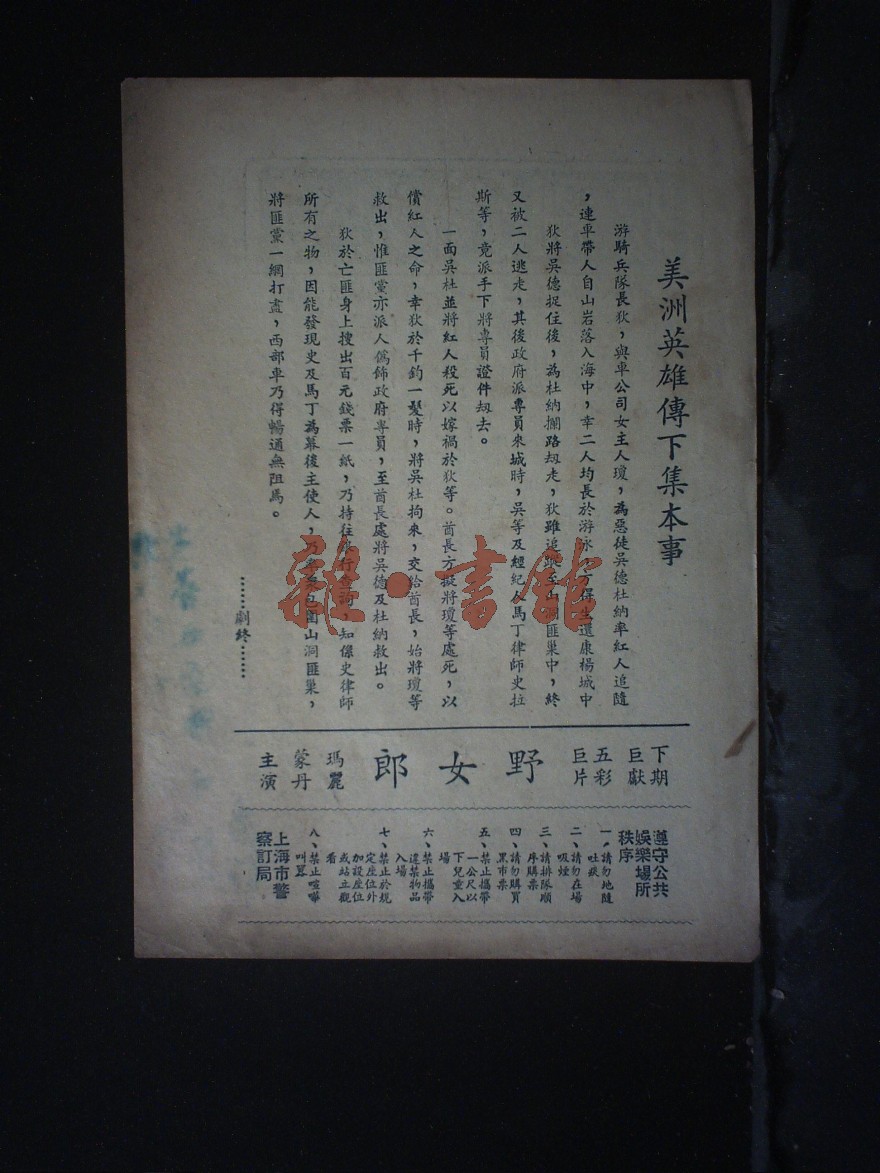 美洲英雄傳下集本事
游騎兵隊長狄,與車公司女主人瓊,為惡徒吳德杜納率紅人追隨
,連車帶人自山岩落入海中,幸二人均長於游泳,得生還康楊城中
狄將吳德捉住後,為杜納攔路刧走,狄雖追蹤至山洞匪巢中,終
又被二人逃走,其後政府派專員來城時,吳等及經紀人馬丁律師史拉
斯等,竟派手下將專員證件刧去。
一面吳杜並將紅人殺死以嫁禍於狄等。酋長方擬將瓊等處死,以
償紅人之命,幸狄於千鈞一髮時,將吳杜拘來,交給酋長,始將瓊等
救出,惟匪黨亦派人偽飾政府專員,至酋長處將吳德及杜納救出。
狄於亡匪身上搜出百元錢票一紙,乃持往銀行查詢,知係史律師
所有之物,因能發現史及馬丁為幕後主使人,乃包圍山洞匪巢,
將匪黨一網打盡,西部車乃得暢通無阻焉。
……劇終……
下期
巨獻
五彩
巨片
野女郎
瑪麗
蒙丹
主演
遵守公共
娛樂場所
秩序
一、請勿地隨
吐痰
二、請勿在場
吸煙
三、請排隊順
序購票
四、請勿購買
黑市票
五、禁止攜帶
一公尺以
下兒童入
場
六、禁止攜帶
違禁物品
入場
七、禁止於規
定座位外
加設座位
或站立觀
看
八、禁止喧嘩
叫囂
上海市警
察訂局
雜·書館